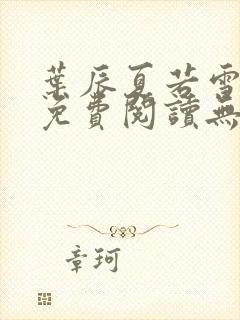 葉辰夏若雪
免費閱讀無
章珂